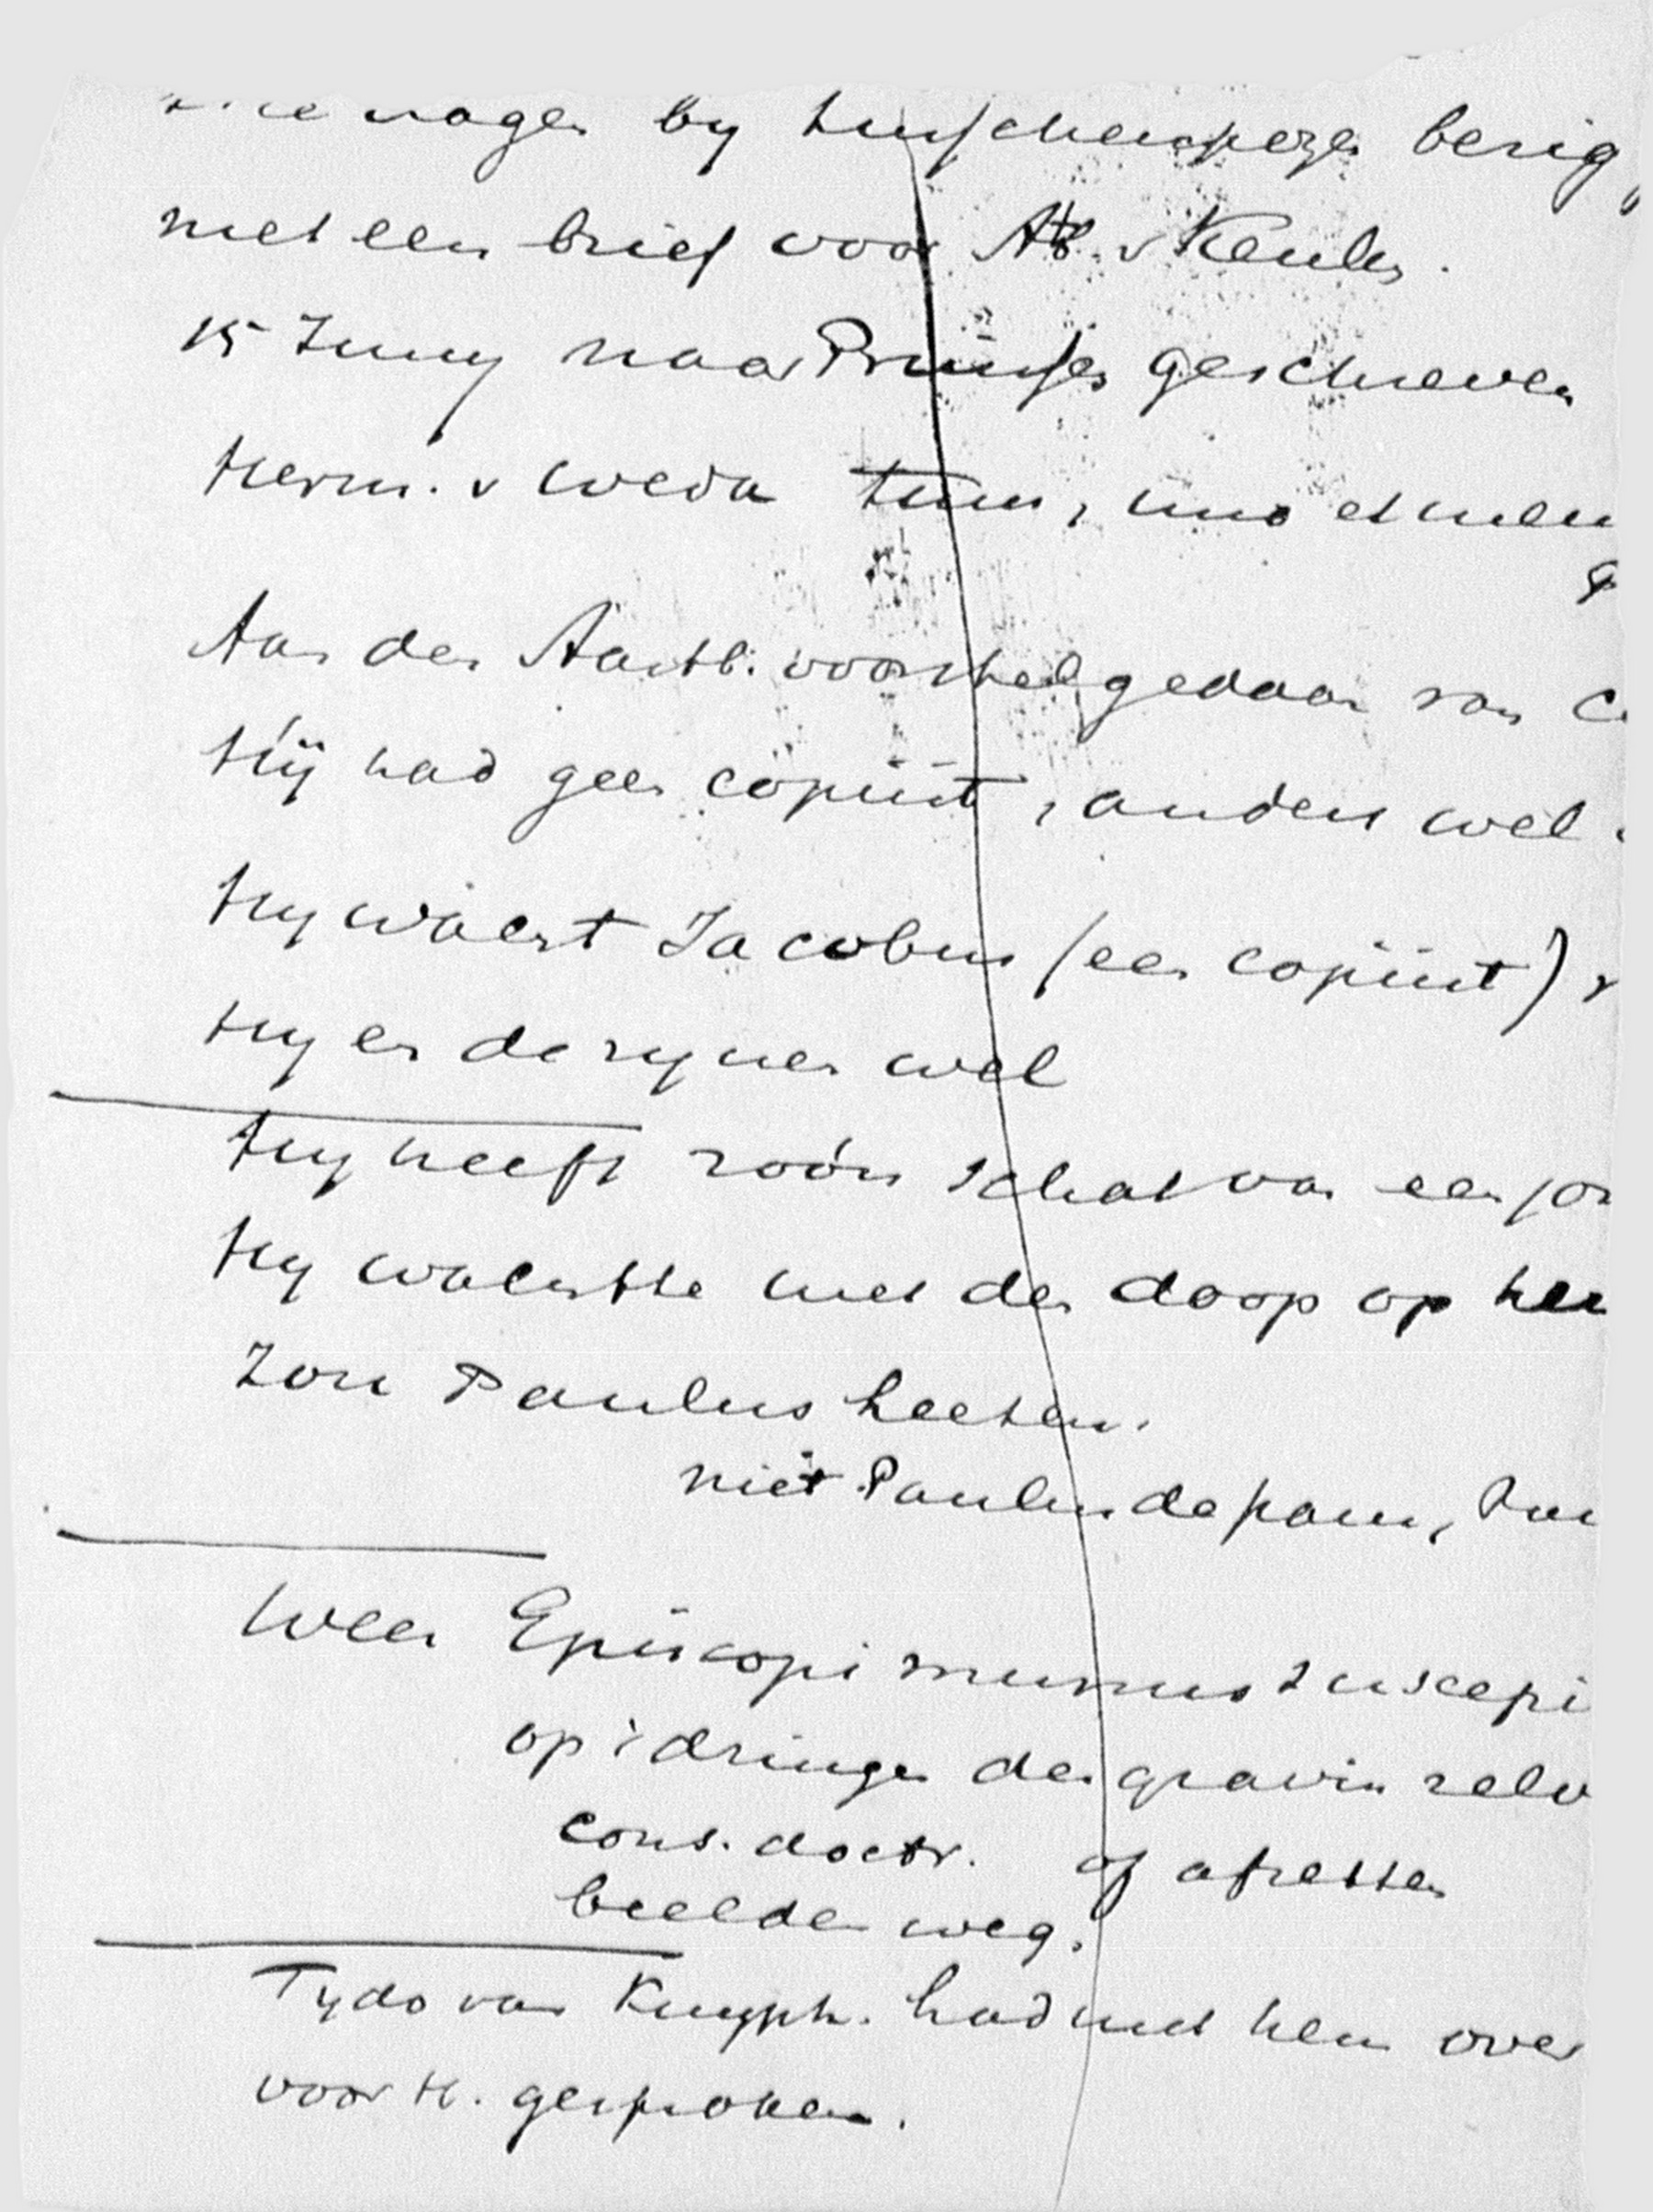 dagen by tusschenpozen bezig
met een brief voor Ab. v Keulen.
15 Juny naar Pruisen geschreven
Herm. v Weda tuus, uno
Aan den Aartsb. voorstel gedaan van
Hij had geen copiist, anders wel.
Hy wenst Jacobus (een copiist)
Hy en de zynen wel
Hy heeft zóón schat van een
Hy wenste met den doop op
Zou Paulus heeten.
niet Paulus de paus,
Weer Episcopi munus suscepi
op 't dringen der gravin
cons. doctr. of aftreden
beelden weg.
Tydo van Knyph. had met hem over
voor H. gesproken.